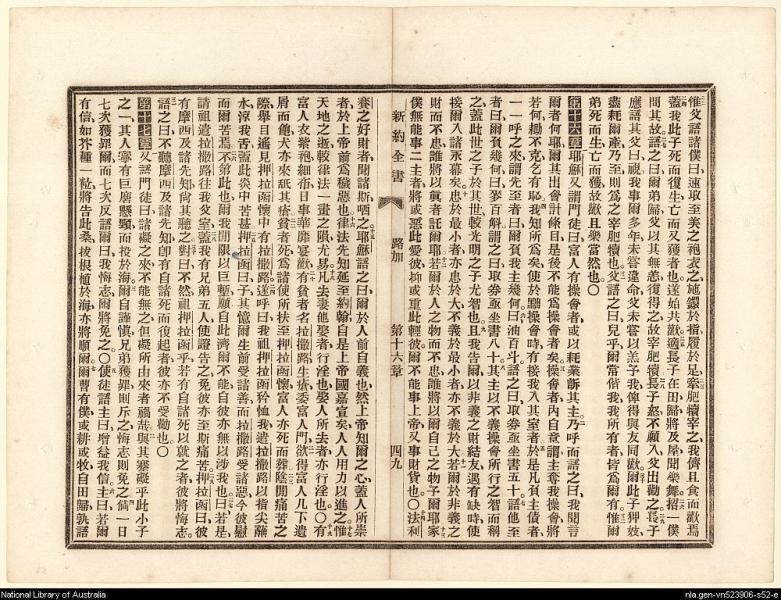 惟父語諸僕曰速取至美之袍衣之施鐶於指履於足牽肥犢宰之我儕且食而歡焉
蓋我此子死而復生亡而又獲者也遂始共歡適長子在田歸將及屋聞樂舞招一僕
問其故語之曰爾弟歸父以其無恙復得之故宰肥犢長子怒不願入父出勸之長子
應語其父曰視我事爾多年未嘗違命父未嘗以羔予我俾得與友同歡爾此子狎妓
盡耗爾產乃至則爲之宰肥犢也父語之曰兒乎爾常偕我我所有者皆爲爾有惟爾
弟死而生亡而獲故歡且樂當然也〇
第十六章耶穌又謂門徒曰富人有操會者或以耗業訴其主乃呼而語之曰我聞言
爾者何耶爾其出會計條目是後不能爲操會者矣操會者內自意謂主奪我操會將
若何鋤不克乞有恥我知所爲矣使於黜操會時有接我入其室者於是凡負主債者
一一呼之來謂先至者曰爾負我主幾何曰油百斗語之曰取券亟坐書五十語他至
者曰爾負幾何曰麥百斛謂之曰取券亟坐書八十其主以不義操會所行之智而稱
之蓋此世之子於其世較光明之子尤智也且我告爾以非義之財結友遇有缺時使
接爾入諸永幕矣忠於最小者亦忠於大不義於最小者亦不義於大若爾於非義之
財而不忠誰將以眞者託爾耶若爾於人之物而不忠誰將以爾自己之物予爾耶家
僕無能事二主者將或惡此愛彼抑或重此輕彼爾不能事上帝又事財貨也〇法利
新約全書 路加 第十六章 四九
賽之好財者聞諸斯哂之耶穌語之曰爾於人前自義也然上帝知爾之心蓋人所崇
者於上帝前爲穢惡也律法先知延至約翰自是上帝國嘉宣矣人人用力以進之惟
天地之逝較律法一畫之隕尤易凡出妻他娶者行淫也娶人所去者亦行淫也〇有
富人衣紫袍細布日事華靡宴歡有貧者名拉撒路生瘡委富人門欲得富人几下遺
屑而飽犬亦來舐其瘡貧者死爲諸使所扶至押拉函懷富人亦死而葬陰間痛苦之
際舉目遙見押拉函懷中有拉撒路遂呼曰我祖押拉函矜恤我遣拉撒路以指尖蘸
水涼我舌蓋此炎中苦甚押拉函曰子其憶爾生前受諸善而拉撒路受諸惡今彼慰
而爾苦焉不第此也爾我間限以巨塹願自此濟爾不能自彼亦無以涉我也曰若是
請祖遣拉撒路往我父室蓋我有兄弟五人使證告之免彼亦至斯痛苦押拉函曰彼
有摩西及諸先知尚其聽之對曰不然祖押拉函乎若有自諸死以就之者彼將悔志
語之曰不聽摩西及諸先知卽有自諸死而復起者彼亦不受勸也〇
第十七章又謂門徒曰諸礙之來不能無之但礙所由來者禍哉與其寨礙乎此小子
之一其人寧有巨磨懸頸而投於海爾自謹愼兄弟獲罪則斥之悔志則免之倘一日
七次獲罪爾而七次反語爾曰我悔志爾將免之〇使徒語主曰增益我信主曰若爾
有信如芥種一粒將告此桑拔根植於海亦將順爾爾曹有僕或耕或牧自田歸孰語
National Library of Australia
nla.gen-vn523906-s52-e